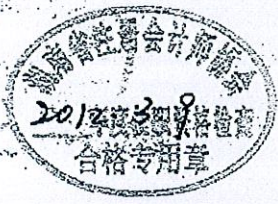 湖南省注册会计师协会
2012年度任职资格检查
3 9
合格专用章